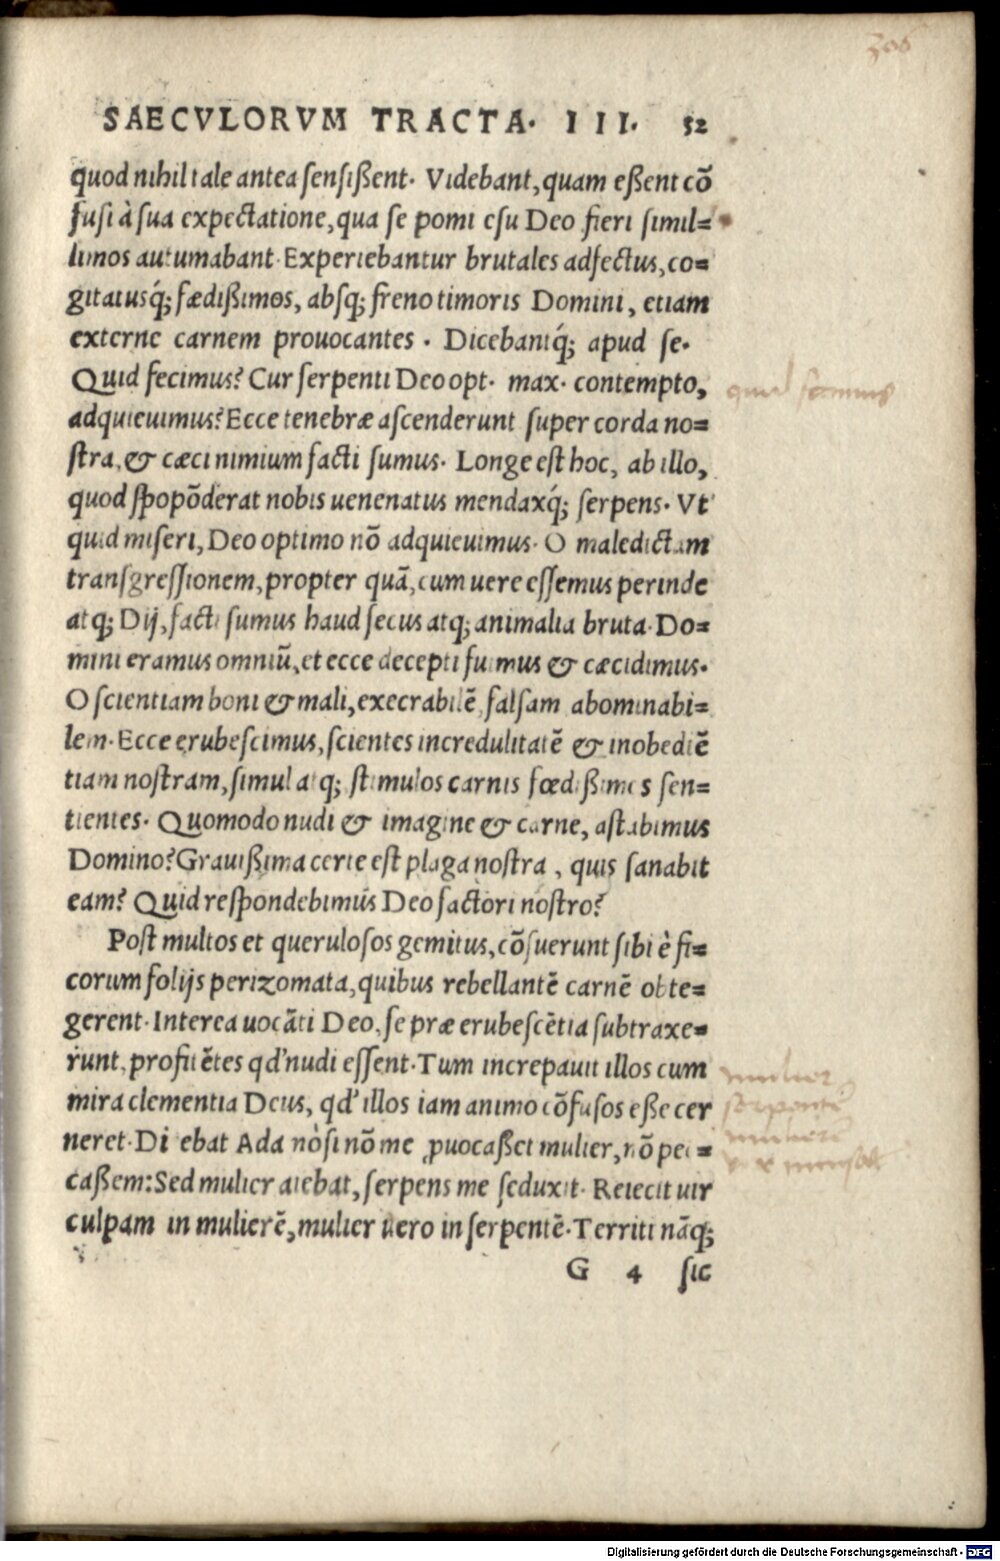 SAECVLORVM TRACTA. III. 52
quod nihil tale antea sensißent. Videbant, quam eßent cõ
fusi à sua expectatione, qua se pomi esu Deo fieri simil=
limos autumabant. Experiebantur brutales adfectus, co=
gitatusq́; fædißimos, absq; freno timoris Domini, etiam
externe carnem prouocantes. Dicebantq́; apud se.
Quid fecimus? Cur serpenti Deo opt. max. contempto,
adquieuimus? Ecce tenebræ ascenderunt super corda no=
stra, & cæci nimium facti sumus. Longe est hoc, ab illo,
quod spopõderat nobis uenenatus mendaxq́; serpens. Vt
quid miseri, Deo optimo nõ adquieuimus. O maledictam
transgressionem, propter quã, cum uere essemus perinde
atq; Dij, facti sumus haud secus atq; animalia bruta. Do=
mini eramus omniũ, et ecce decepti fuimus & cæcidimus.
O scientiam boni & mali, execrabilẽ, falsam abominabi=
lem. Ecce erubescimus, scientes incredulitatẽ & inobediẽ
tiam nostram, simul atq; stimulos carnis fœdißimos sen=
tientes. Quomodo nudi & imagine & carne, astabimus
Domino? Grauißima certe est plaga nostra, quis sanabit
eam? Quid respondebimus Deo factori nostro?
Post multos et querulosos gemitus, cõsuerunt sibi è fi=
corum folijs perizomata, quibus rebellantẽ carnẽ obte=
gerent. Interea uocãti Deo, se præ erubescẽtia subtraxe=
runt, profitẽtes qd' nudi essent. Tum increpauit illos cum
mira clementia Deus, qd' illos iam animo cõfusos eße cer
neret. Di ebat Ada nòsi nõ me ꝓuocaßet mulier, nõ pec=
caßem: Sed mulier aiebat, serpens me seduxit. Reiecit uir
culpam in mulierẽ, mulier uero in serpentẽ. Territi nãq;
G 4 sic
mulier
serpente
Digitalisierung gefördert durch die Deutsche Forschungsgemeinschaft - DFG